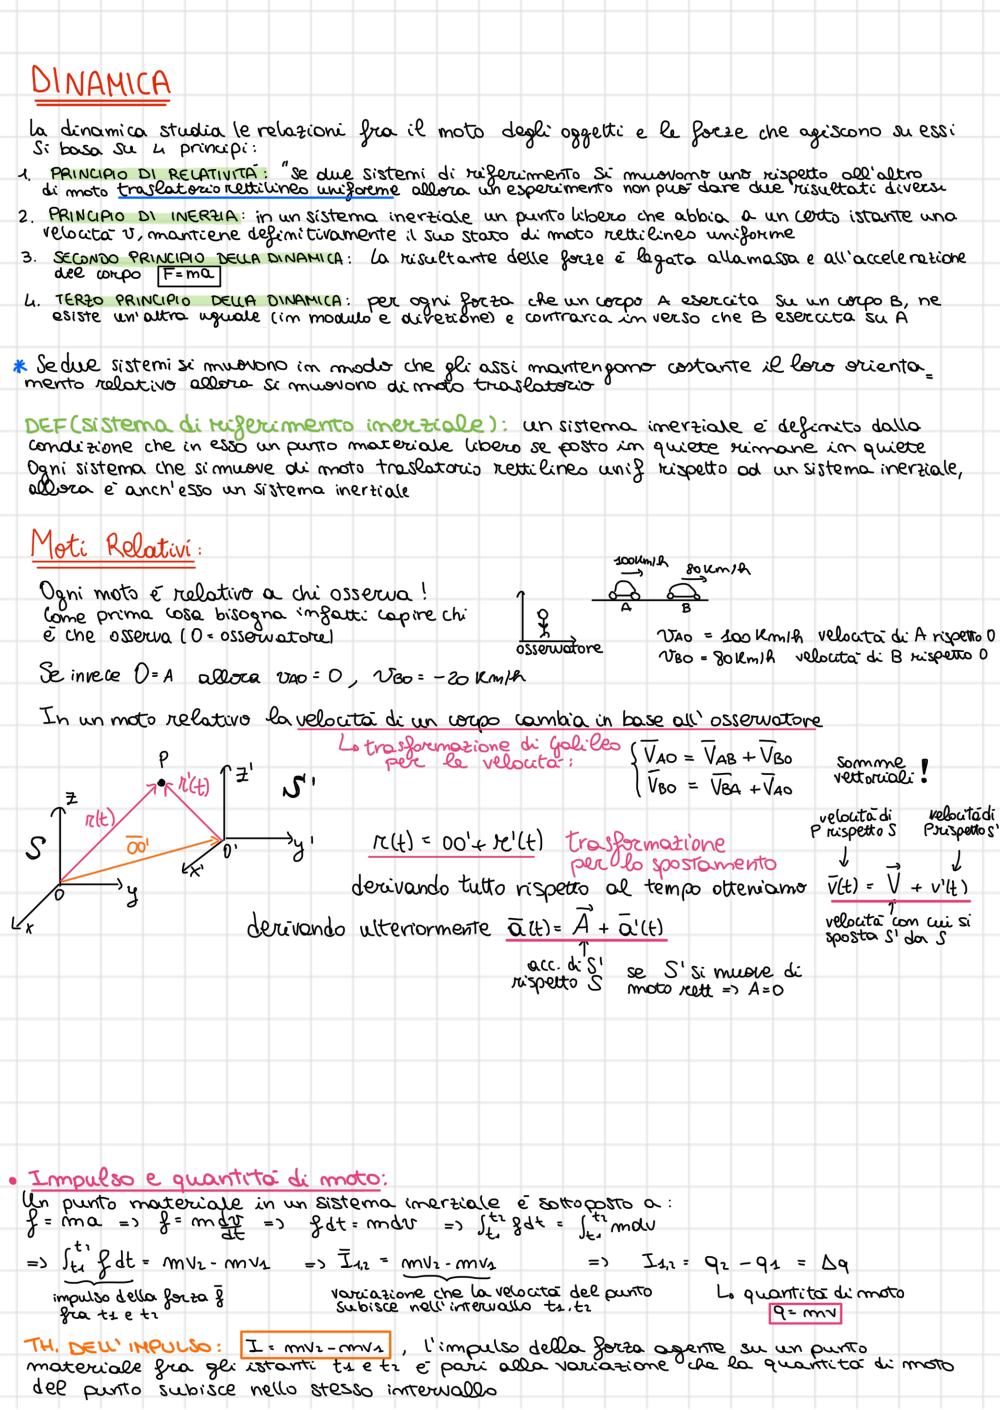 DINAMICA
La dinamica studia le relazioni fra il moto degli oggetti e le forze che agiscono su essi
Si basa su 4 principi:
1. PRINCIPIO DI RELATIVITÀ: "Se due sistemi di riferimento si muovono uno rispetto all'altro
di moto traslatorio rettilineo uniforme allora un esperimento non può dare due risultati diversi
2. PRINCIPIO DI INERZIA: in un sistema inerziale un punto libero che abbia a un certo istante una
velocità v, mantiene definitivamente il suo stato di moto rettilineo uniforme
3. SECONDO PRINCIPIO DELLA DINAMICA: La risultante delle forze è legata alla massa e all'accelerazione
del corpo F=ma
4. TERZO PRINCIPIO DELLA DINAMICA: per ogni forza che un corpo A esercita su un corpo B, ne
esiste un'altra uguale (in modulo e direzione) e contraria in verso che B esercita su A
* Se due sistemi si muovono in modo che gli assi mantengono costante il loro orienta=
mento relativo allora si muovono di moto traslatorio
DEF(sistema di riferimento inerziale): un sistema inerziale è definito dalla
condizione che in esso un punto materiale libero se posto in quiete rimane in quiete
Ogni sistema che si muove di moto traslatorio rettilineo unif rispetto ad un sistema inerziale,
allora è anch'esso un sistema inerziale
Moti Relativi:
Ogni moto è relativo a chi osserva!
Come prima cosa bisogna infatti capire chi
è che osserva (O=osservatore)
100km/h
80km/h
A
B
osservatore
VAO = 100 Km/h velocità di A rispetto O
VBO = 80Km/h velocità di B rispetto O
Se invece O=A allora VAO = 0, VBO = -20 Km/h
In un moto relativo la velocità di un corpo cambia in base all'osservatore
↳ trasformazione di Galileo
per le velocità:
{ V̅AO = V̅AB + V̅BO
V̅BO = V̅BA + V̅AO
somme
vettoriali!
P
z
z'
r(t)
r'(t)
S
S'
OO'
O
O'
y
y'
x
x'
r(t) = OO' + r'(t)
trasformazione
per lo spostamento
velocità di
P rispetto S
velocità di
P rispetto S'
derivando tutto rispetto al tempo otteniamo v̅(t) = V⃗ + v'(t)
velocità con cui si
sposta S' da S
derivando ulteriormente a̅(t) = A⃗ + a̅'(t)
acc. di S'
rispetto S
se S' si muove di
moto rett => A=0
• Impulso e quantità di moto:
Un punto materiale in un sistema inerziale è sottoposto a:
f = ma => f = m dv/dt => fdt = mdv => ∫t1^t2 fdt = ∫t1^t2 mdv
=> ∫t1^t2 f dt = mv2 - mv1 => I̅1,2 = mv2 - mv1 => I1,2 = q2 - q1 = Δq
impulso della forza f̅
fra t1 e t2
variazione che la velocità del punto
subisce nell'intervallo t1,t2
↳ quantità di moto
q = mv
TH. DELL'IMPULSO: I = mv2 - mv1, l'impulso della forza agente su un punto
materiale fra gli istanti t1 e t2 è pari alla variazione che la quantità di moto
del punto subisce nello stesso intervallo